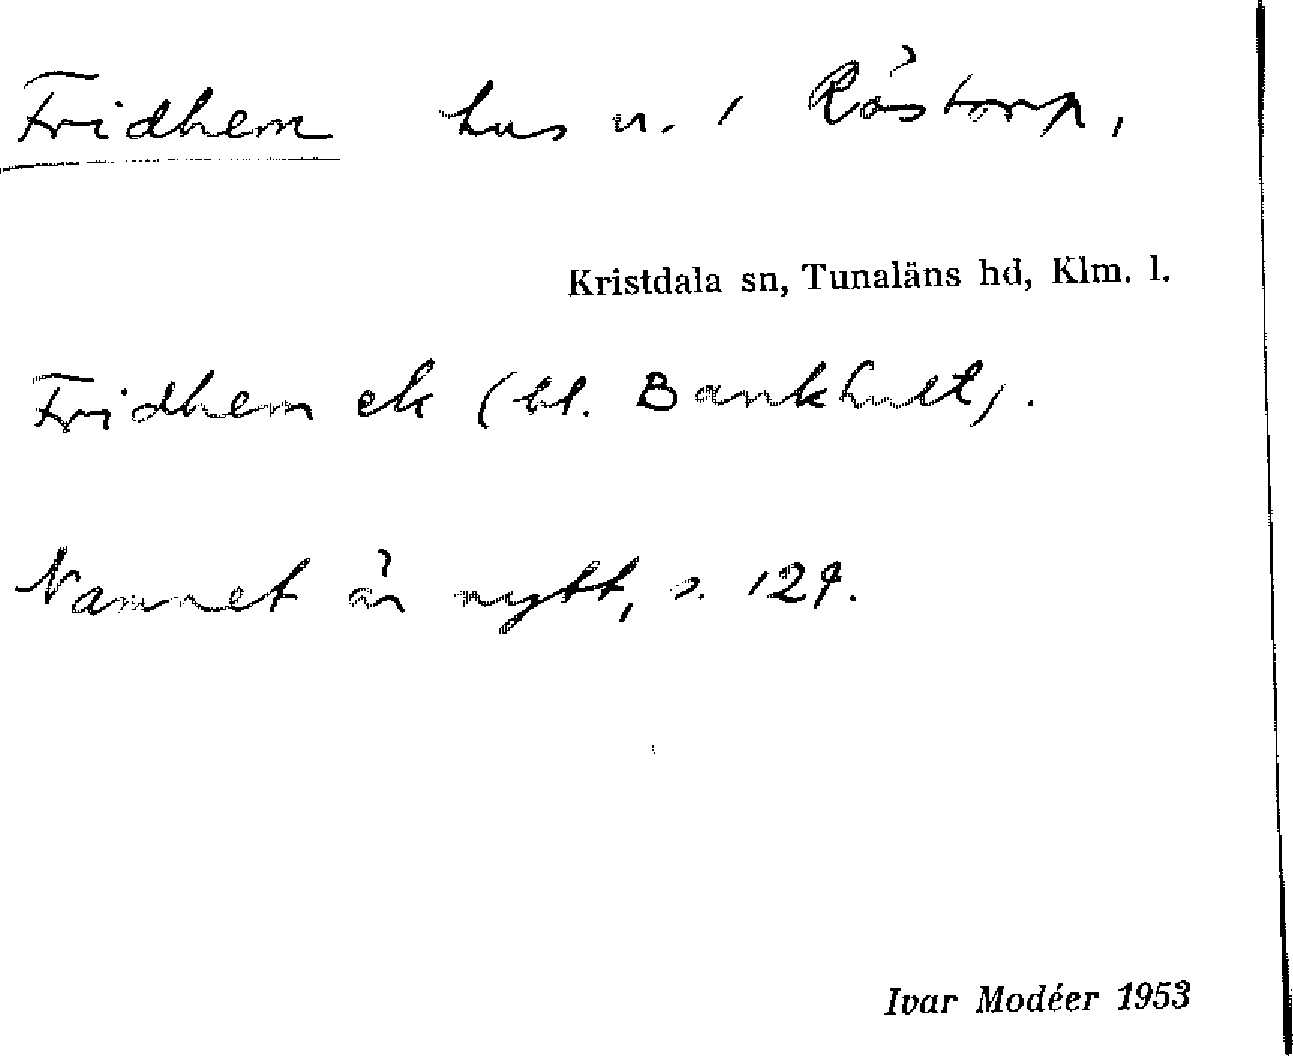 Fridhem hus n. i Råstorp,
Kristdala sn, Tunaläns hd, Klm. l.
Fridhem ek (bl. Bankhult).
Namnet är nytt, s. 129.
Ivar Modéer 1953